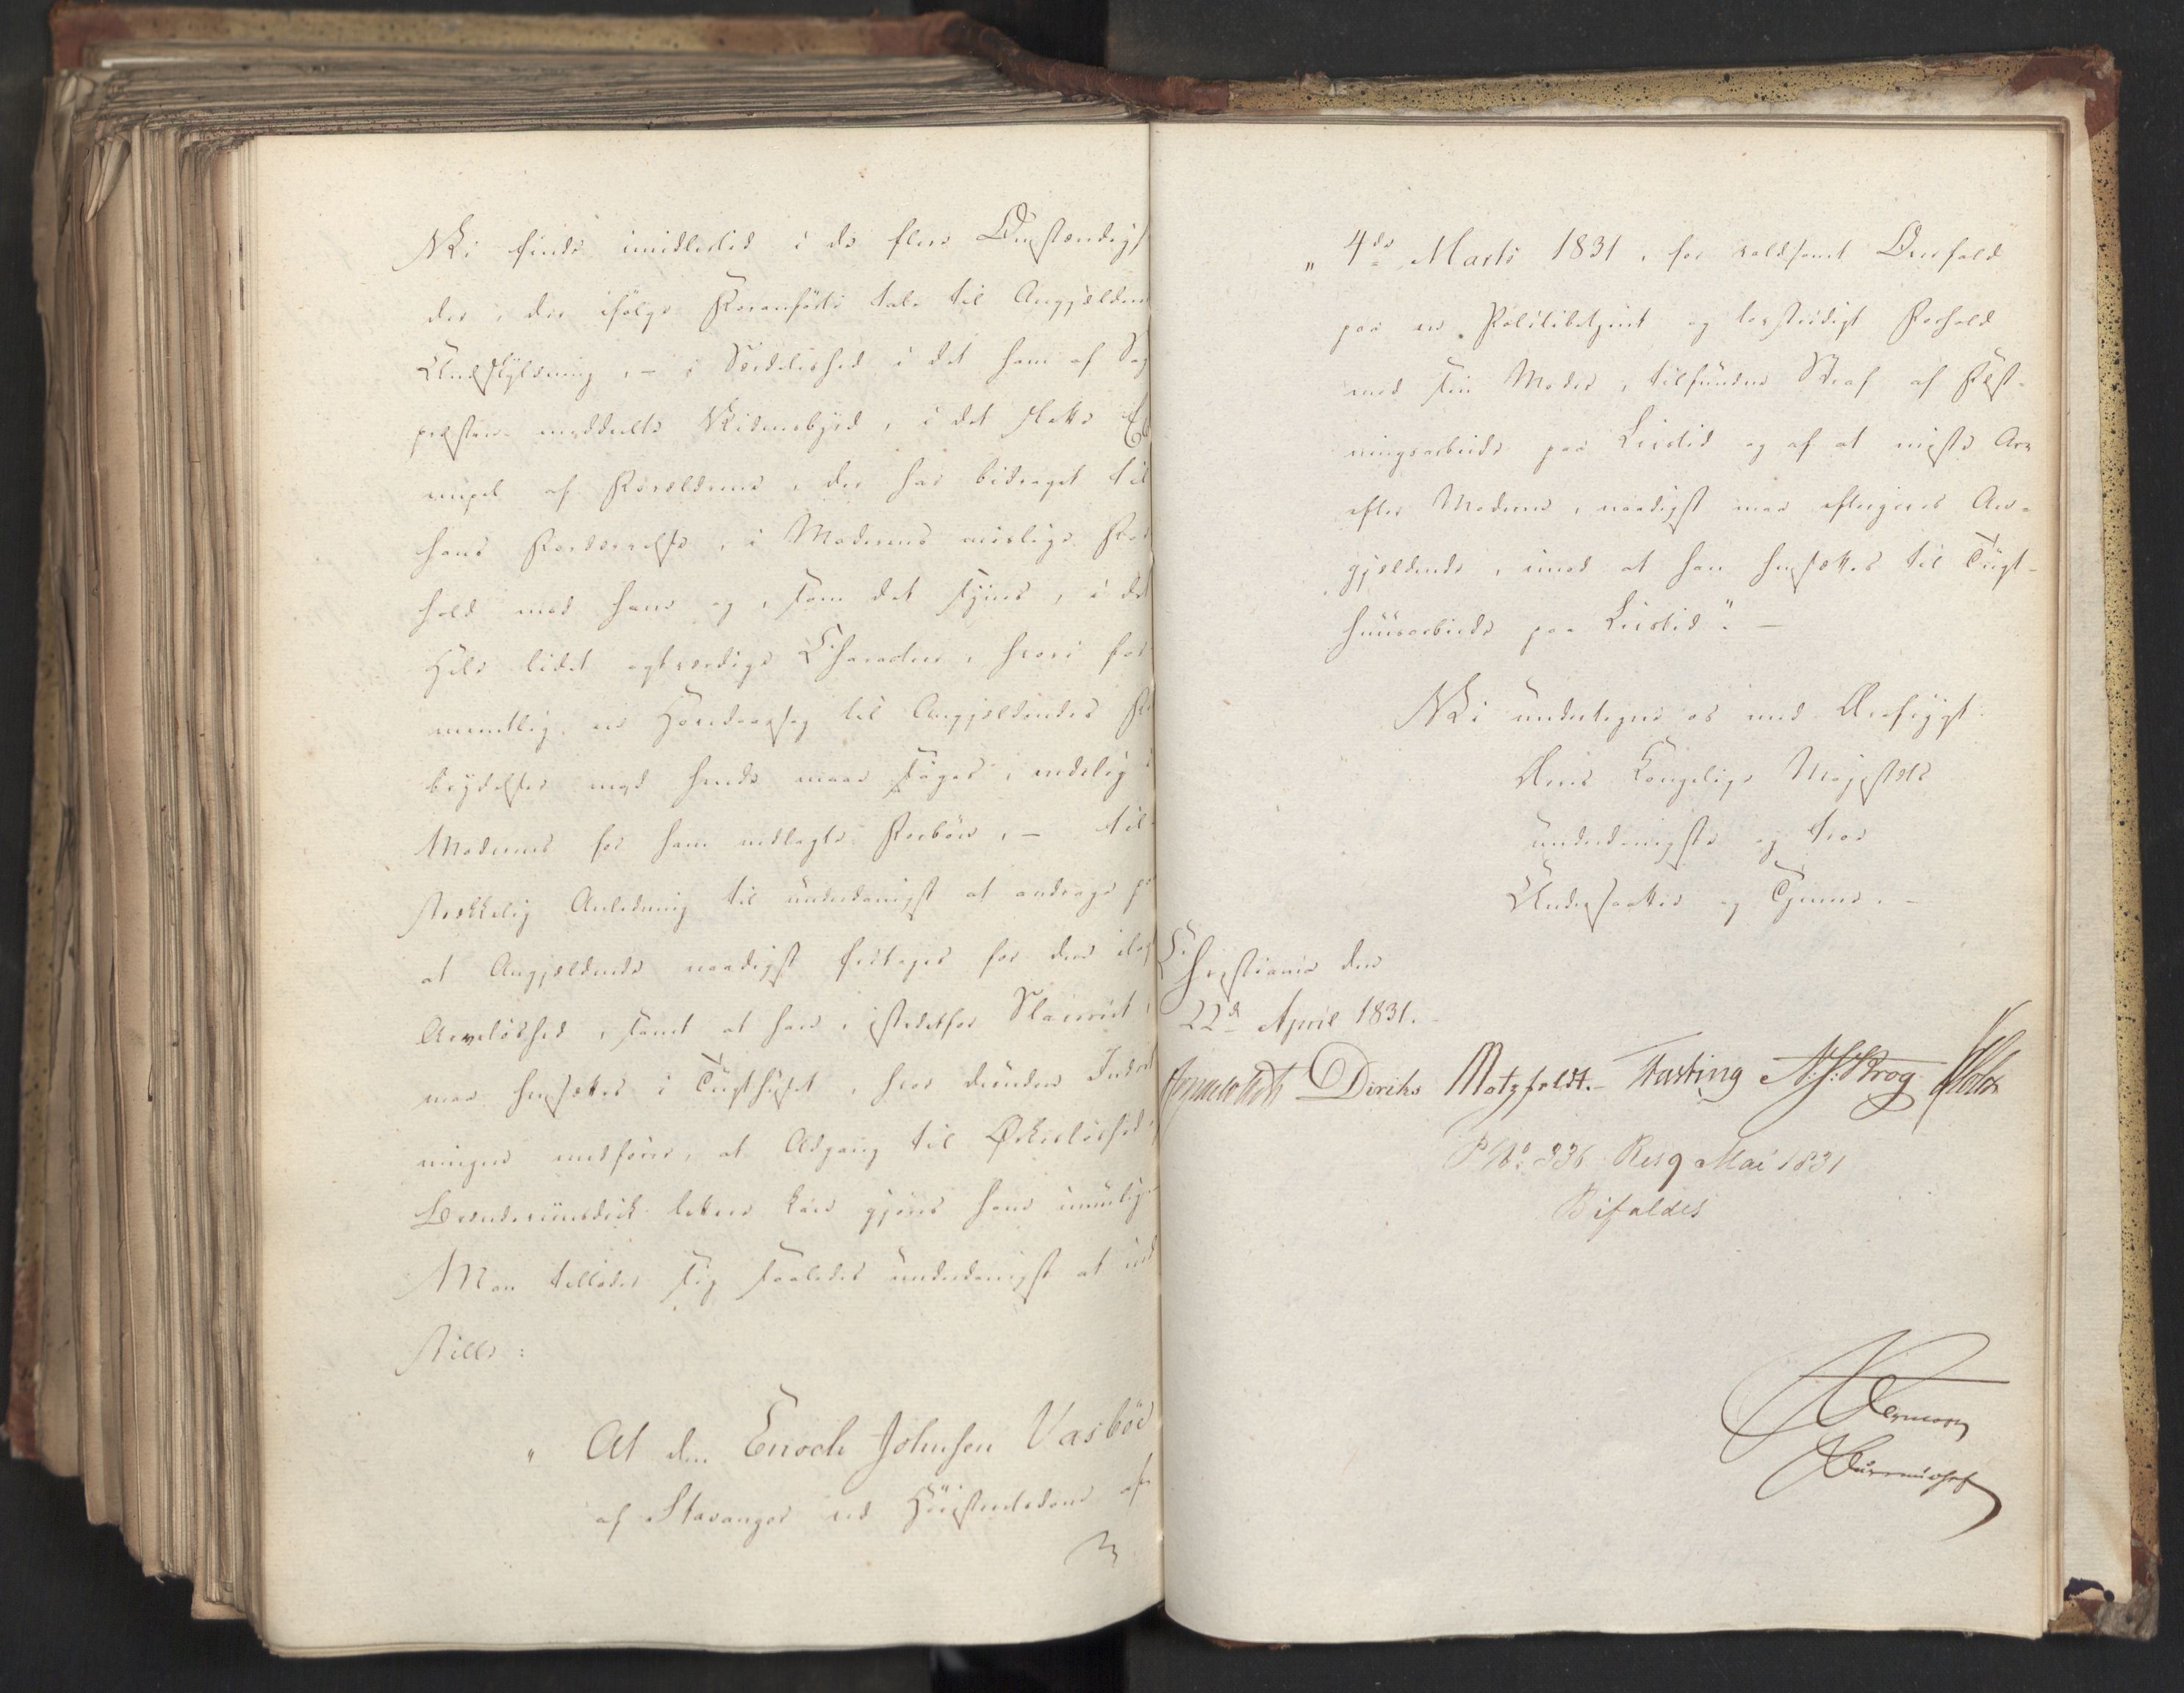 Vi finde imidlertid i de flere Omstændig-
der, der ifølge Foranførte tale til Angjeldendes
Undskyldning, – i Særdeleshed i det ham af Sogne-
præsten meddeelte Vidnesbyrd, i det slette Ex-
empel af Forældrene, der har bidraget til
hans Fordærvelse, i Moderens uærlige For-
hold mod ham og, som det synes, i det
Hele lidet agtværdige Character, hvori for-
mentlig en Hovedaarsag til Angjeldendes For-
brydelse mod hende maae søges, endelig i
Moderens for ham nedlagte Forbøn, – til-
strækkelig Anledning til underdanigst at andrage paa
at Angjeldende naadigst fritages for den ilagte
Arveløshed, samt at han, istedetfor Slaveriet,
maa hensættes i Tugthuset, hvor dennes Indret-
ninger medfører, at Adgang til Ørkesløshed,
Brændeviinsdrik lettere kan gjøres ham umulig.
Man tillader sig saaledes underdanigst at ind-
stille:
" At den Enoch Johnsen Vasbøe
af Stavanger ved Høiesteretsdom af
" 4de Marts 1831, for voldsomt Overfald
paa en Politibetjent og lovstridigt Forhold
mod sin Moder, tilfundne Straf af Fæst-
ningsarbeide paa Livstid og af at miste Arv
efter Moderen, naadigst maa eftergives An-
gjeldende, imod at han hensættes til Tugt-
huusarbeide paa Livstid". –
Vi undertegne os med Ærefrygt
Deres Kongelige Majestæts
underdanigste og troe
Undersaatter og Tjenere. –
Christiania den
22d April 1831.
Diriks Motzfeldt. Fasting N: J: Krog Holst
P No: 336 Res 9 Mai 1831
Bifaldes